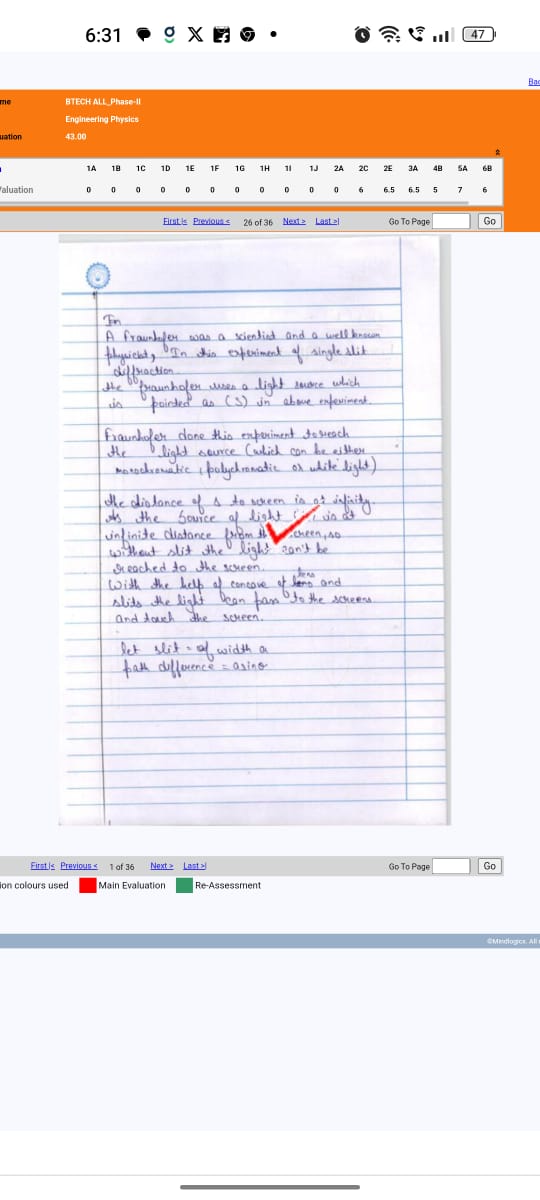 6:31
47
Bac
me
BTECH ALL_Phase-II
Engineering Physics
uation
43.00
1A 1B 1C 1D 1E 1F 1G 1H 1I 1J 2A 2C 2E 3A 4B 5A 6B
/aluation 0 0 0 0 0 0 0 0 0 0 0 6 6.5 6.5 5 7 6
First |< Previous < 26 of 36 Next > Last >| Go To Page Go
A fraunhofer was a scientist and a well known
physicist, In this experiment of single slit
diffraction
the fraunhofer uses a light source which
is pointed as (S) in above experiment.
Fraunhofer done this experiment to reach
the light source (which can be either
monochromatic, polychromatic or white light)
the distance of s to screen is at infinity.
As the source of light is at
infinite distance from the screen, so
without slit the light can't be
reached to the screen.
With the help of concave of lens and
slits the light can pass to the screens
and touch the screen.
let slit = of width a
path difference = asinθ
First |< Previous < 1 of 36 Next > Last >| Go To Page Go
ion colours used Main Evaluation Re-Assessment
©Mindlogicx. All